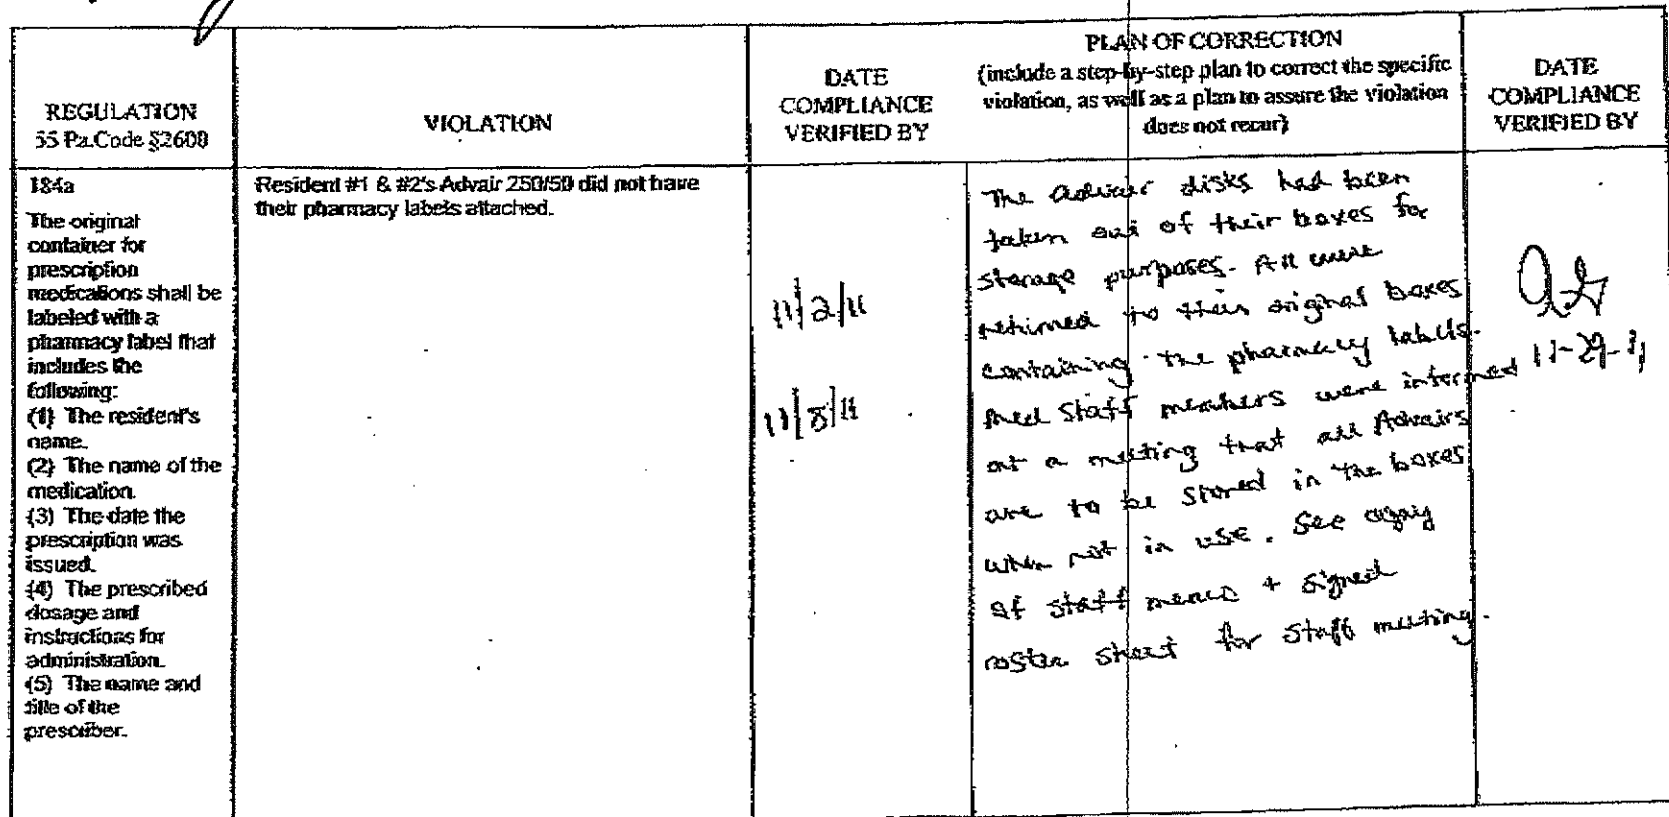 REGULATION
55 Pa.Code §2600
VIOLATION
DATE
COMPLIANCE
VERIFIED BY
PLAN OF CORRECTION
(include a step-by-step plan to correct the specific
violation, as well as a plan to assure the violation
does not recur)
DATE
COMPLIANCE
VERIFIED BY
184a
The original
container for
prescription
medications shall be
labeled with a
pharmacy label that
includes the
following:
(1) The resident's
name.
(2) The name of the
medication.
(3) The date the
prescription was
issued.
(4) The prescribed
dosage and
instructions for
administration.
(5) The name and
title of the
prescriber.
Resident #1 & #2's Advair 250/50 did not have
their pharmacy labels attached.
11/2/11
11/8/11
The Advair disks had been
taken out of their boxes for
storage purposes. All were
returned to their original boxes
containing the pharmacy labels.
Med staff members were informed
at a meeting that all Advairs
are to be stored in the boxes
when not in use. See copy
of staff memo + signed
roster sheet for staff meeting.
11-29-11